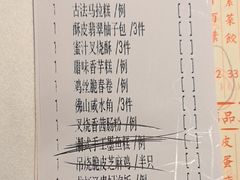 1 古法马拉糕/例 [ ]
1 酥皮翡翠柚子包/3件 [ ]
1 蜜汁叉烧酥/3件 [ ]
1 腊味香芋糕/例 [ ]
1 鸡丝脆春卷/例 [ ]
1 佛山咸水角/3件 [ ]
1 叉烧香茜肠粉/例 [ ]
手工 /例 [ ]
吊烧脆皮芝麻鸡/半只
菜
餃
品
皮
蛋